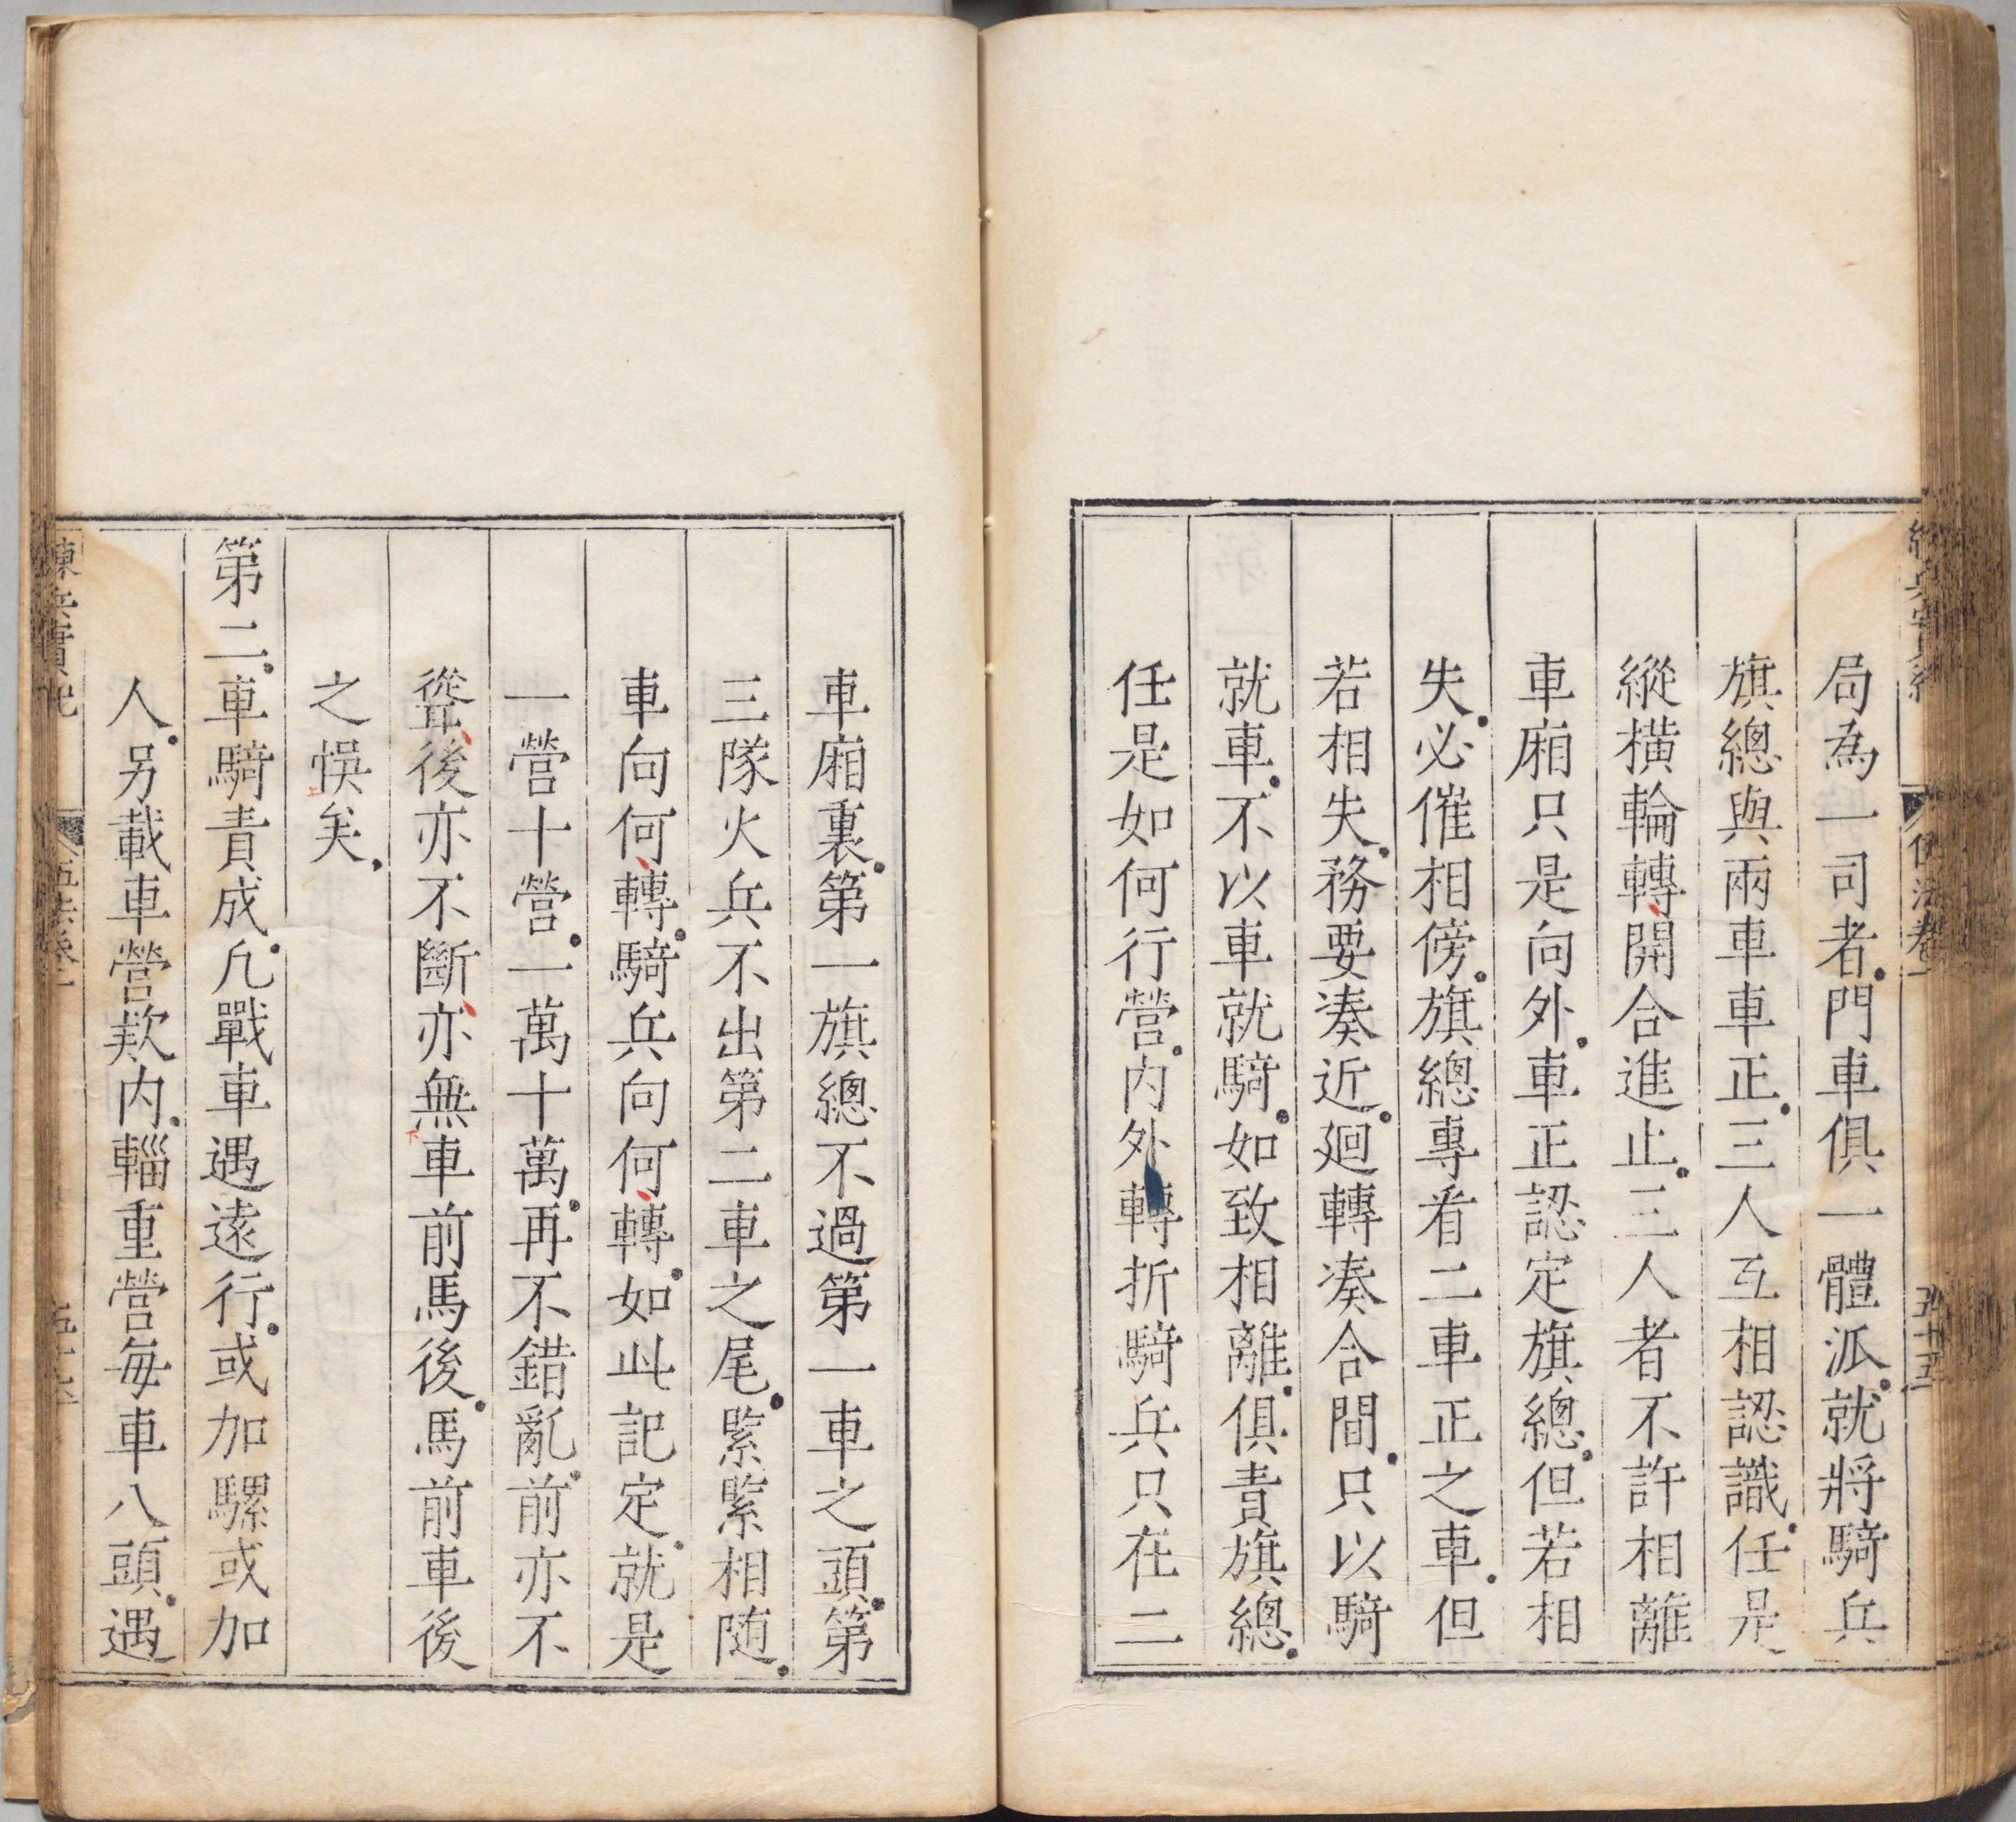 局為一司者門車俱一體派就將騎兵
旗總與兩車車正三人互相認識任是
縱橫輪轉開合進止三人者不許相離
車廂只是向外車正認定旗總但若相
失必催相傍旗總專看二車正之車但
若相失務要凑近廻轉凑合間只以騎
就車不以車就騎如致相離俱責旗總
任是如何行營內外轉折騎兵只在二
車廂裏第一旗總不過第一車之頭第
三隊火兵不出第二車之尾緊緊相随
車向何轉騎兵向何轉如此記定就是
一營十營一萬十萬再不錯亂前亦不
聳後亦不斷亦無車前馬後馬前車後
之悞矣
第二車騎責成凡戰車遇遠行或加騾或加
人另載車營款內輜重營每車八頭遇